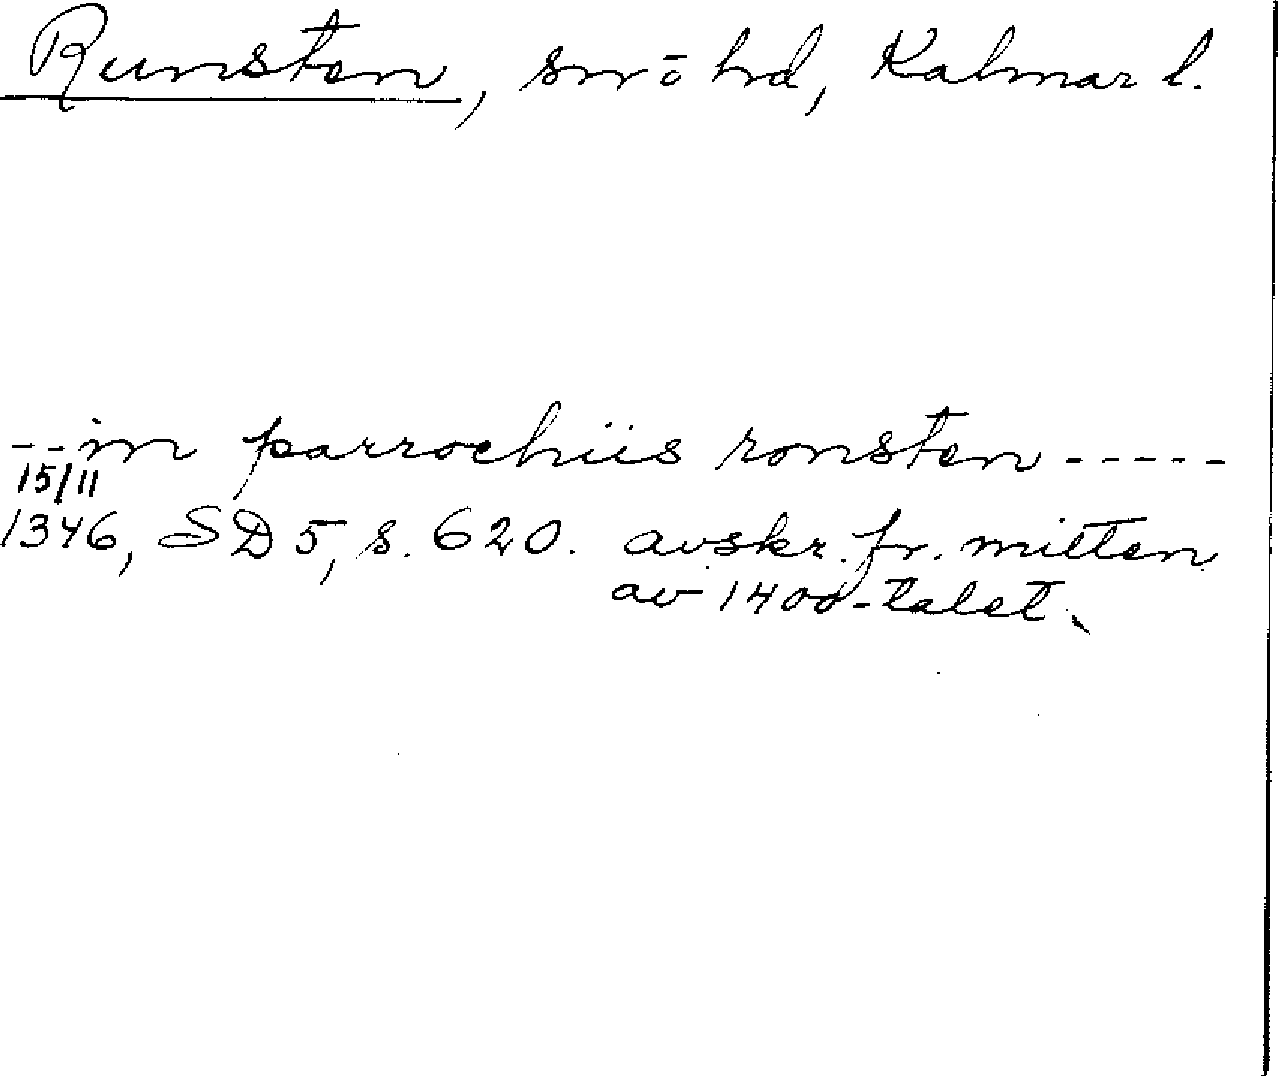 Runsten, sn o hd, Kalmar l.
--in parrochiis ronsten-----
15/11
1346, SD 5, s. 620. avskr. fr. mitten
av 1400-talet.